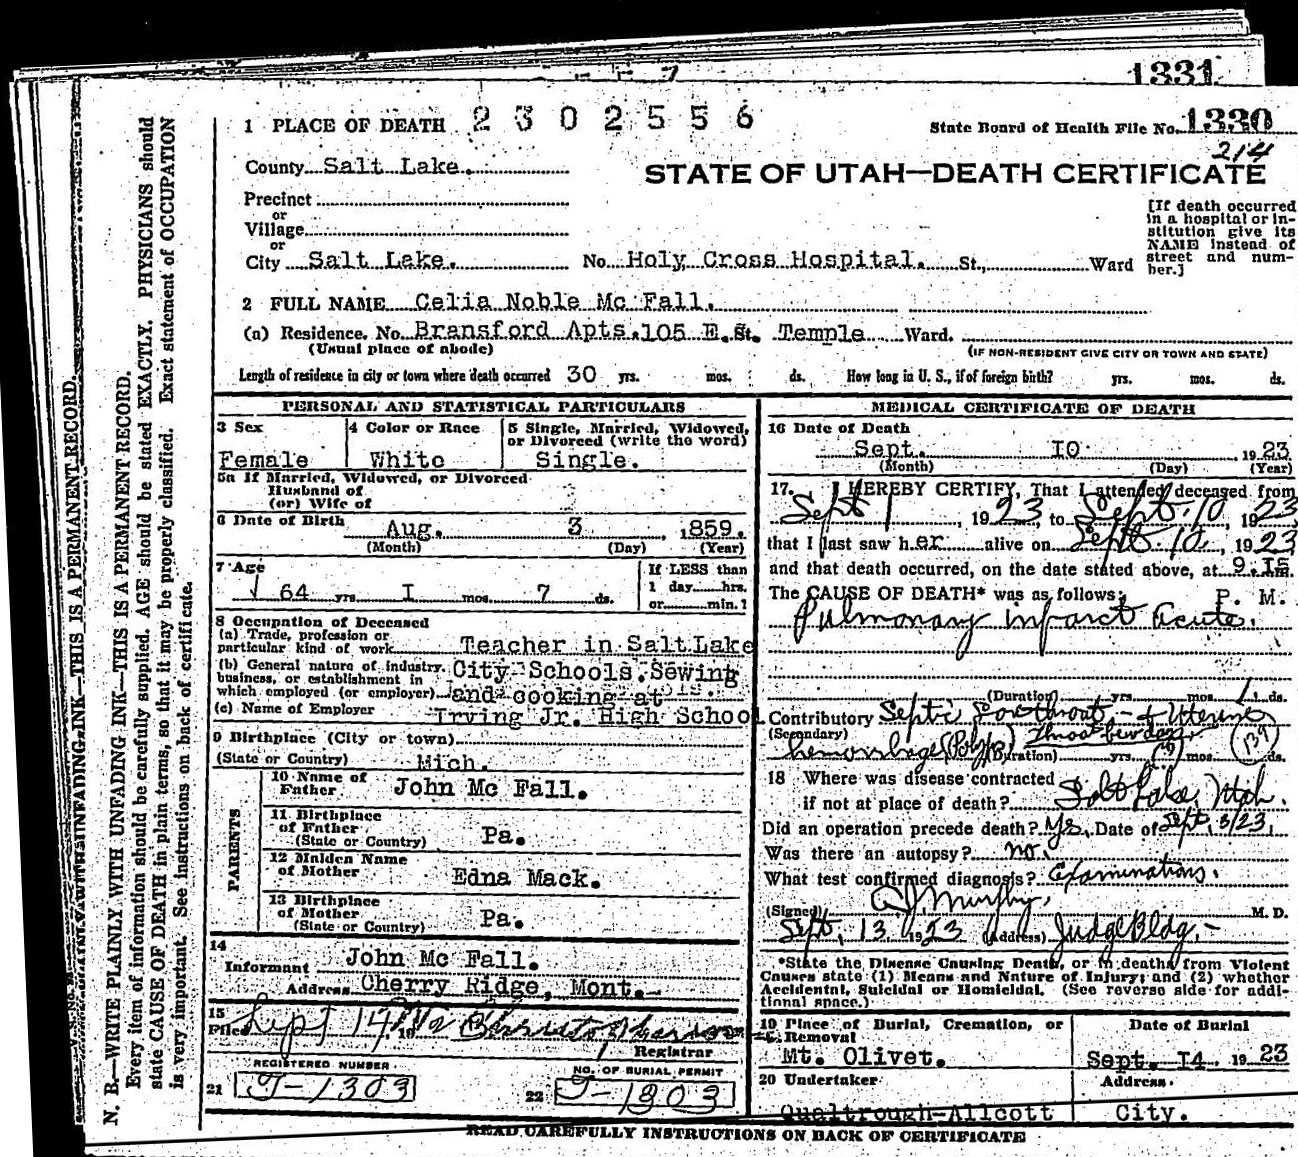 1331
1 PLACE OF DEATH 2302556
State Board of Health File No. 1330
214
County Salt Lake.
STATE OF UTAH—DEATH CERTIFICATE
Precinct
or
Village
or
City Salt Lake. No. Holy Cross Hospital. St., Ward
[If death occurred in a hospital or institution give its NAME instead of street and number.]
2 FULL NAME Celia Noble Mc Fall.
(a) Residence. No. Bransford Apts. 105 E. St. Temple Ward.
(Usual place of abode) (IF NON-RESIDENT GIVE CITY OR TOWN AND STATE)
Length of residence in city or town where death occurred 30 yrs. mos. ds. How long in U. S., if of foreign birth? yrs. mos. ds.
PERSONAL AND STATISTICAL PARTICULARS
3 Sex
Female
4 Color or Race
White
5 Single, Married, Widowed, or Divorced (write the word)
Single.
5a If Married, Widowed, or Divorced
Husband of
(or) Wife of
6 Date of Birth Aug. 3 ,1859.
(Month) (Day) (Year)
7 Age
64 yrs I mos. 7 ds.
If LESS than
1 day hrs.
or min.?
8 Occupation of Deceased
(a) Trade, profession or particular kind of work Teacher in Salt Lake
(b) General nature of industry, business, or establishment in which employed (or employer) City Schools. Sewing and cooking at
(c) Name of Employer Irving Jr. High School
9 Birthplace (City or town)
(State or Country) Mich.
PARENTS
10 Name of Father John Mc Fall.
11 Birthplace of Father (State or Country) Pa.
12 Maiden Name of Mother Edna Mack.
13 Birthplace of Mother (State or Country) Pa.
14
Informant John Mc Fall.
Address Cherry Ridge, Mont.
15
Filed Sept 14
Registrar
REGISTERED NUMBER
21 J-1303
NO. OF BURIAL PERMIT
22 J-1303
MEDICAL CERTIFICATE OF DEATH
16 Date of Death
Sept. I0 , 1923
(Month) (Day) (Year)
17. I HEREBY CERTIFY, That I attended deceased from
Sept 1, 1923, to Sept. 10, 1923
that I last saw her alive on Sept. 10, 1923
and that death occurred, on the date stated above, at 9.I5 m.
The CAUSE OF DEATH* was as follows: P. M.
Pulmonary infarct Acute.
(Duration) yrs. mos. 1 ds.
Contributory Septic Sore throat - + Uterine
(Secondary)
hemorrhage (Polyp) (Duration) yrs. mos. ds.
139
18 Where was disease contracted
if not at place of death? Salt Lake, Utah.
Did an operation precede death? Yes. Date of Sept, 3/23,
Was there an autopsy? no.
What test confirmed diagnosis? Examinations.
(Signed) Murphy, M. D.
Sept, 13 1923 (Address) Judge Bldg.-
*State the Disease Causing Death, or in deaths from Violent Causes state (1) Means and Nature of Injury; and (2) whether Accidental, Suicidal or Homicidal. (See reverse side for additional space.)
19 Place of Burial, Cremation, or Removal
Mt. Olivet.
Date of Burial
Sept. I4 1923
20 Undertaker
Qualtrough-Allcott
Address.
City.
READ CAREFULLY INSTRUCTIONS ON BACK OF CERTIFICATE
N. B.—WRITE PLAINLY WITH UNFADING INK—THIS IS A PERMANENT RECORD.
Every item of information should be carefully supplied. AGE should be stated EXACTLY. PHYSICIANS should
state CAUSE OF DEATH in plain terms, so that it may be properly classified. Exact statement of OCCUPATION
is very important. See instructions on back of certificate.